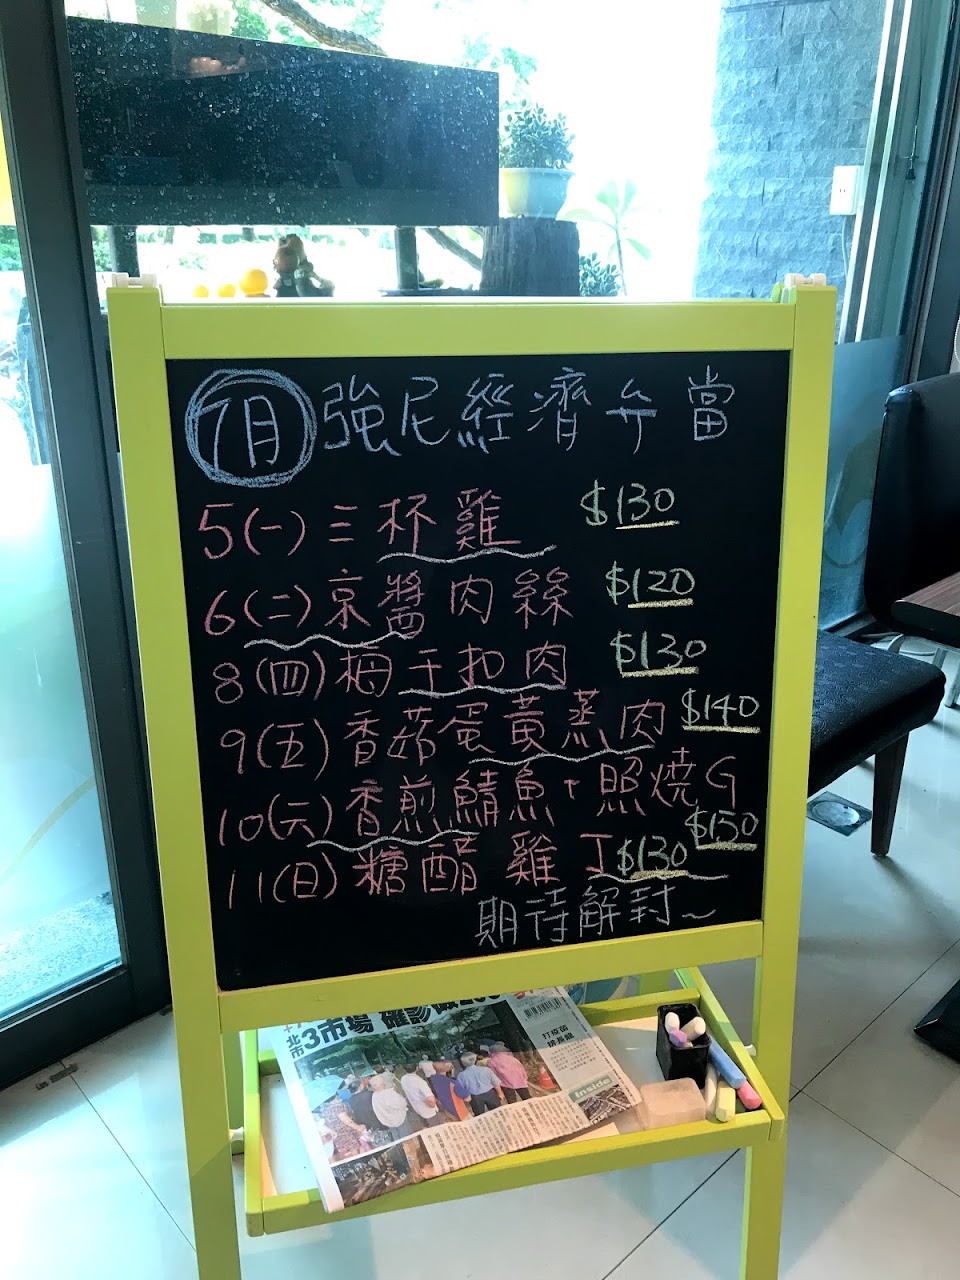 7月 強尼經濟弁當
5(一) 三杯雞 $130
6(二) 京醬肉絲 $120
8(四) 梅干扣肉 $130
9(五) 香菇蛋黃蒸肉 $140
10(六) 香煎鯖魚+照燒G $150
11(日) 糖醋雞丁 $130
期待解封~
北市3市場 確診破200
打疫苗
排長龍
Inside